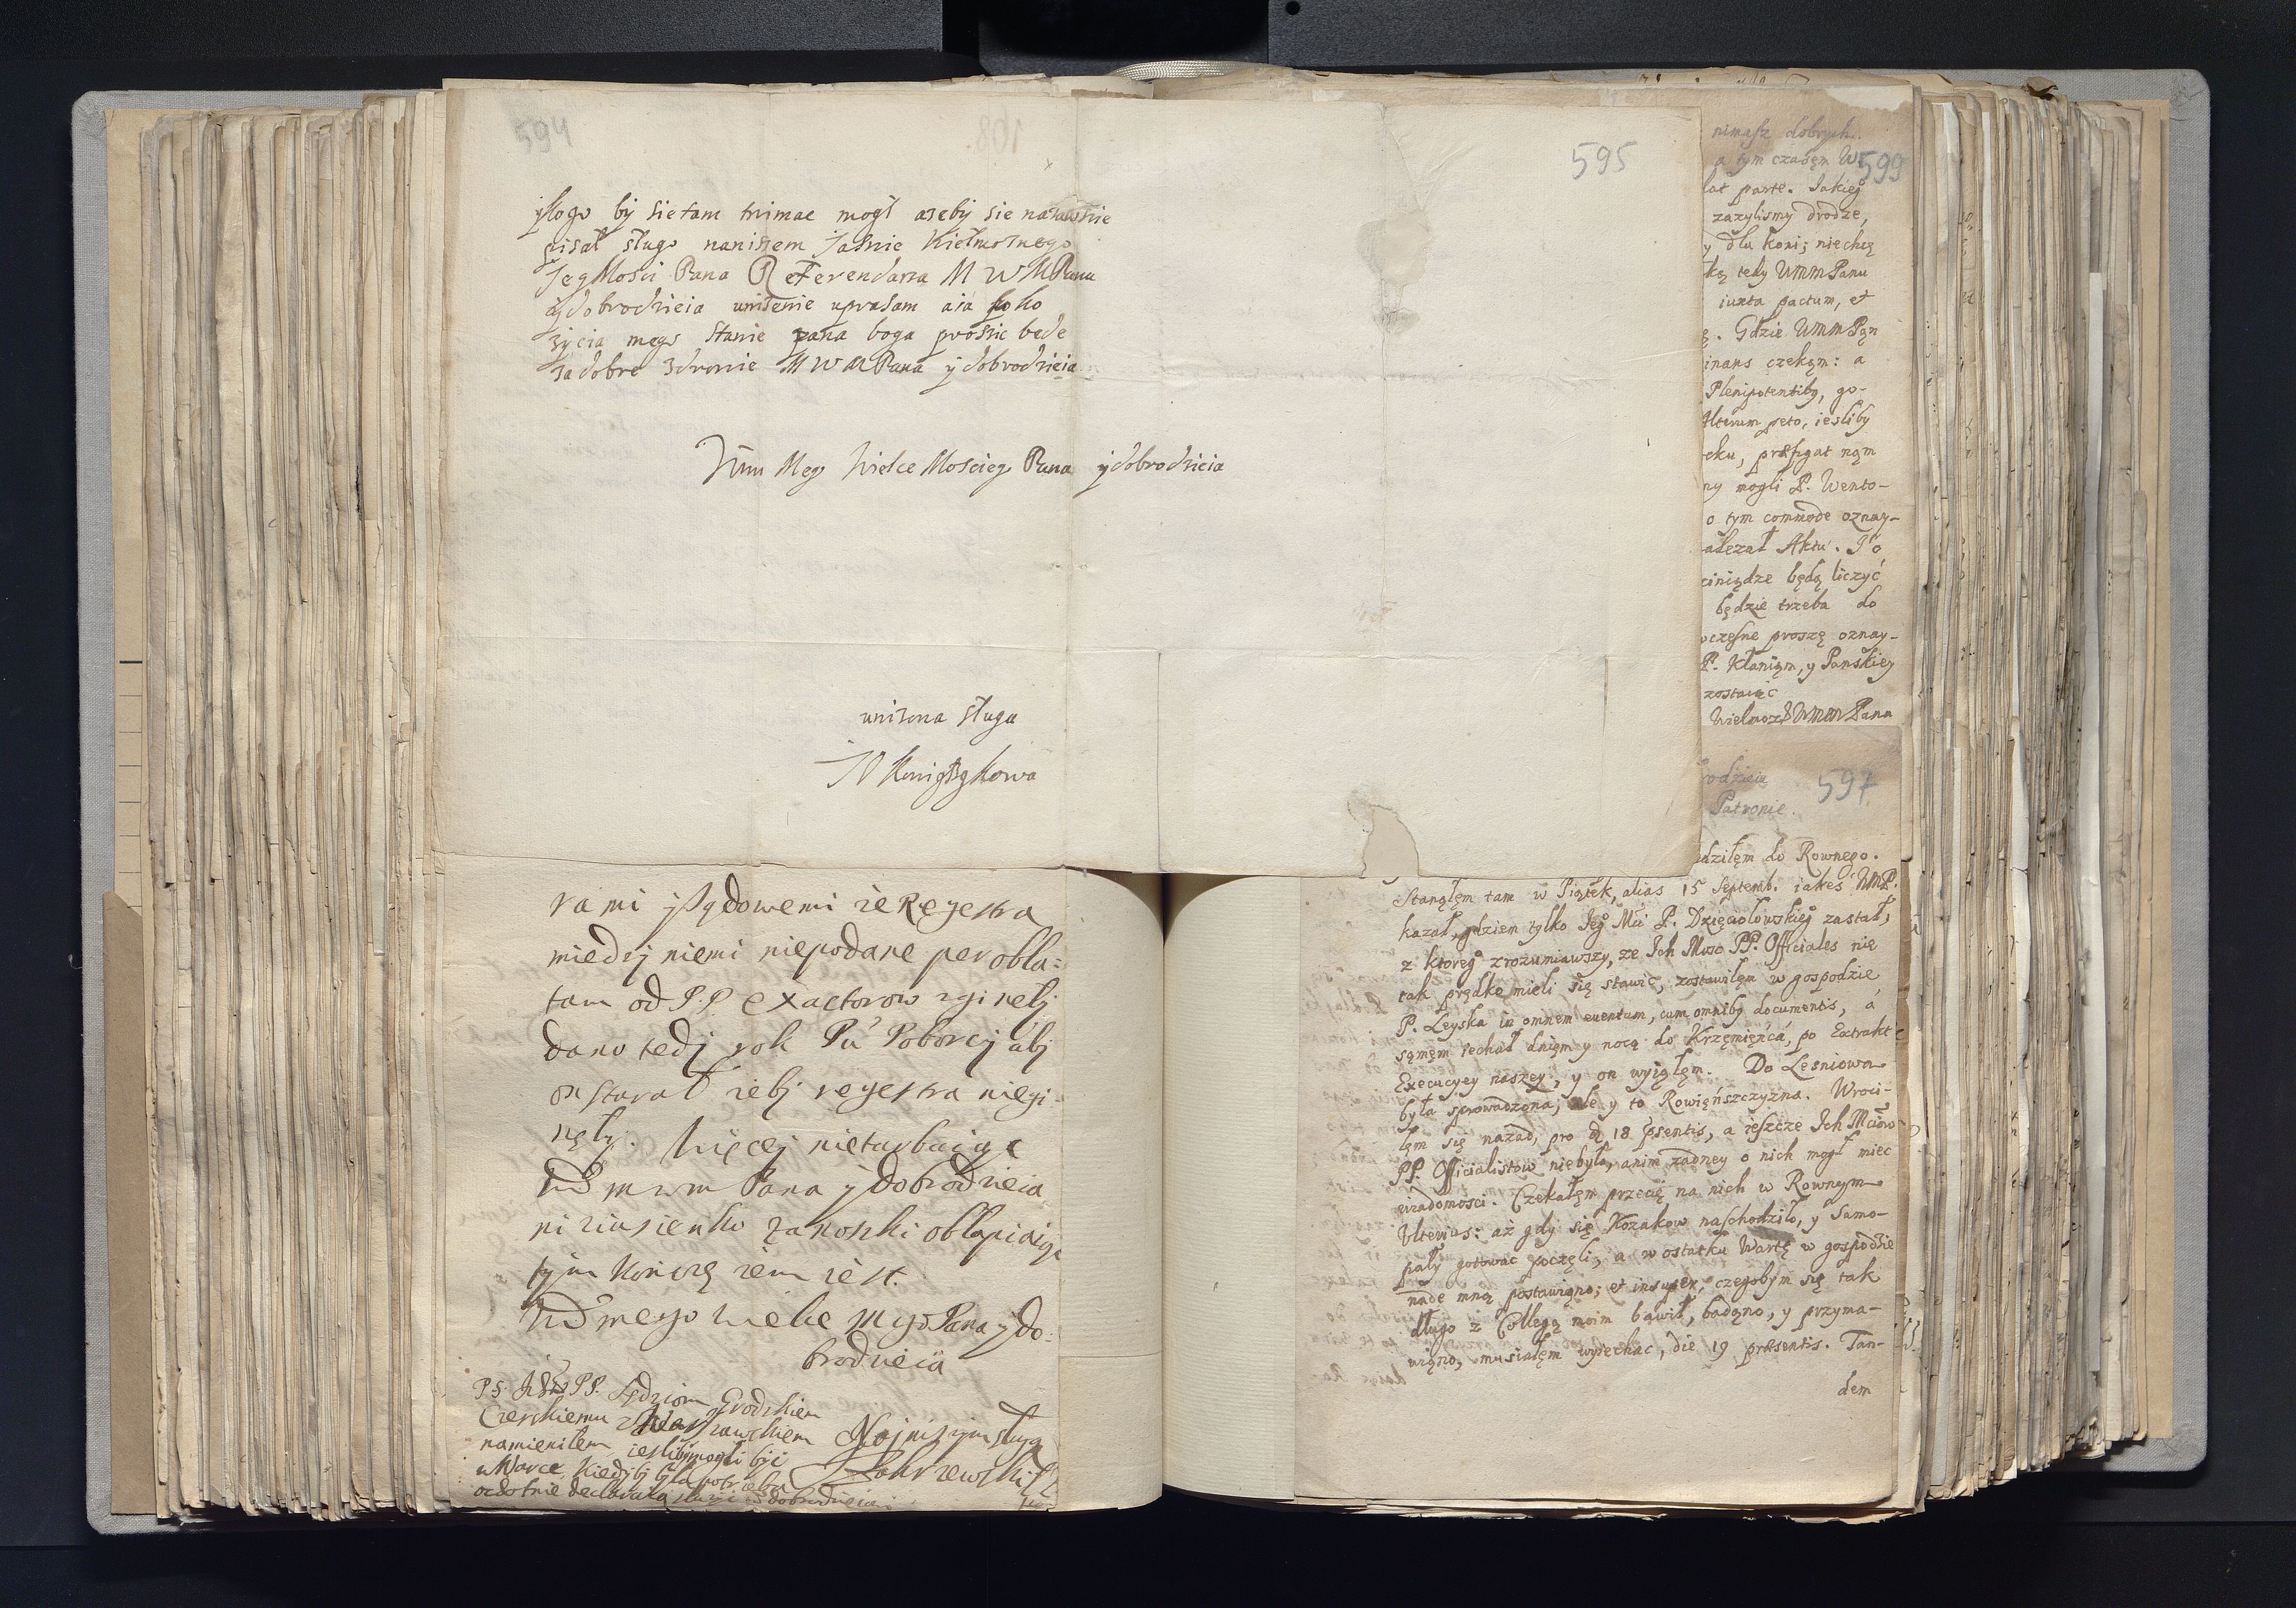 594
595
by sie tam trimac mogl azeby sie
pisał sługo naniszem Jasnie Wielmoznego
JegMosci Pana Referendarza M W MPana
ydobrodzieia unizenie upraszam a ia poko
zycia mego stanie pana boga prosic bede
za dobre zdrowie M W MPana ydobrodzieia
Mego Wielce Moscieg Pana ydobrodzieia
unizona sługa
rami ysądowemi ze Regestra
miedzy niemi niepodane per obla=
tam od P.P. exactorow zgineły
dano tedy rok Pu Poborcy aby
on starał zeby regestra niegi
neły. Więcej nieturbuiąc
WD m w m Pana y Dobrodzieia
nizusienko za noszki obłapiaiąc
tym koncze zem iest.
WD mego wielce mgo Pana y do-
brodzieia
P.S. PP. Sędziom Grodzkiem
Czerskiemu z Warszawskiem
namieniłem iesliby mogli byc
w Warce kiedyby była potrzeba
ochotnie declaruią
Najniszym sługą
Zakrzewski
nimasz dobrych.
a tym czasęm W
599
lat parte. Jakieg
zazylismy drodze,
y dla koni; niechcą
ką tedy UMMPanu
iuxta pactum, et
ę. Gdzie UMMPąn
inans czekąm: a
Plenipotentiby, go-
Alterum peto, iesliby
eku, præfigat nąm
ny mogli P. Wento-
o tym commode oznay-
ależał Aktu. Po
iniądze będą liczyć
będzie trzeba do
czesne proszę oznay-
P. Kłaniąm, y Panskiey
zostaięć
Wielmoz UMMPana
rodzieiu
Patronie.
597
dziłęm do Rownego.
Stanąłęm tam w Piątek, alias 15 Septemb. iakeś WMP.
kazał, gdziem tylko Jeg Mci P. Dzięciołowskieg zastał;
z ktoreg zrozumiawszy, ze Ich Mość PP. Officiales nie
tak prędko mieli się stawić, zostawiłęm w gospodzie
P. Leyska in omnem euentum, cum omniby documentis, á
sąmęm iechał dnięm y nocą do Krzęmięńca, po Extrakt
Execucyey naszey, y on wyiąłęm. Do Lesniowa
była sprowadzona, ale y to Rowięńszczyzna. Wroci-
łęm się nazad, pro d 18 psentis, a ieszcze Ich Mciow
PP. Officialistow niebyło, anim żadney o nich mogł miec
wiadomosci. Czekałęm przecię na nich w Rownym
Vlterius: aż gdy się Kozakow naschodziło, y Samo-
pały gotowac poczęli, a w ostatku Wartę w gospodzie
nade mną postawiąno; et insuper, czegobym się tak
długo z Collegą moim bawił, badąno, y przyma-
wiąno, musiałęm wyiechac, die 19 præsentis. Tan-
dem